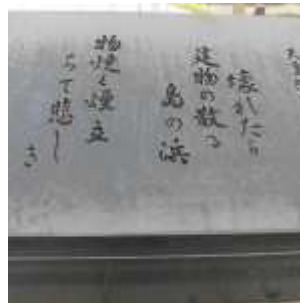 壊れたら
建物の散る
島の浜
物焼く煙立
ちて悲し
き